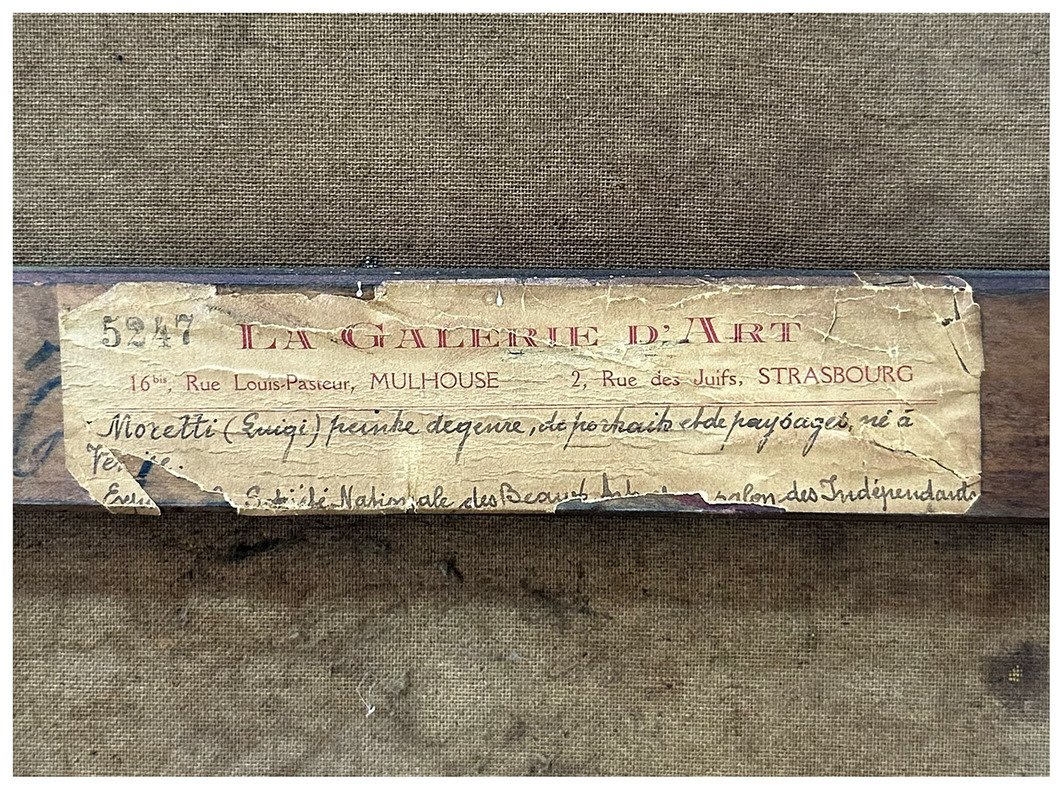 5247 LA GALERIE D'ART
16bis, Rue Louis-Pasteur, MULHOUSE 2, Rue des Juifs, STRASBOURG
Moretti (Luigi) peintre de genre, de portraits et de paysages, né à
Société Nationale des Beaux salon des Indépendants